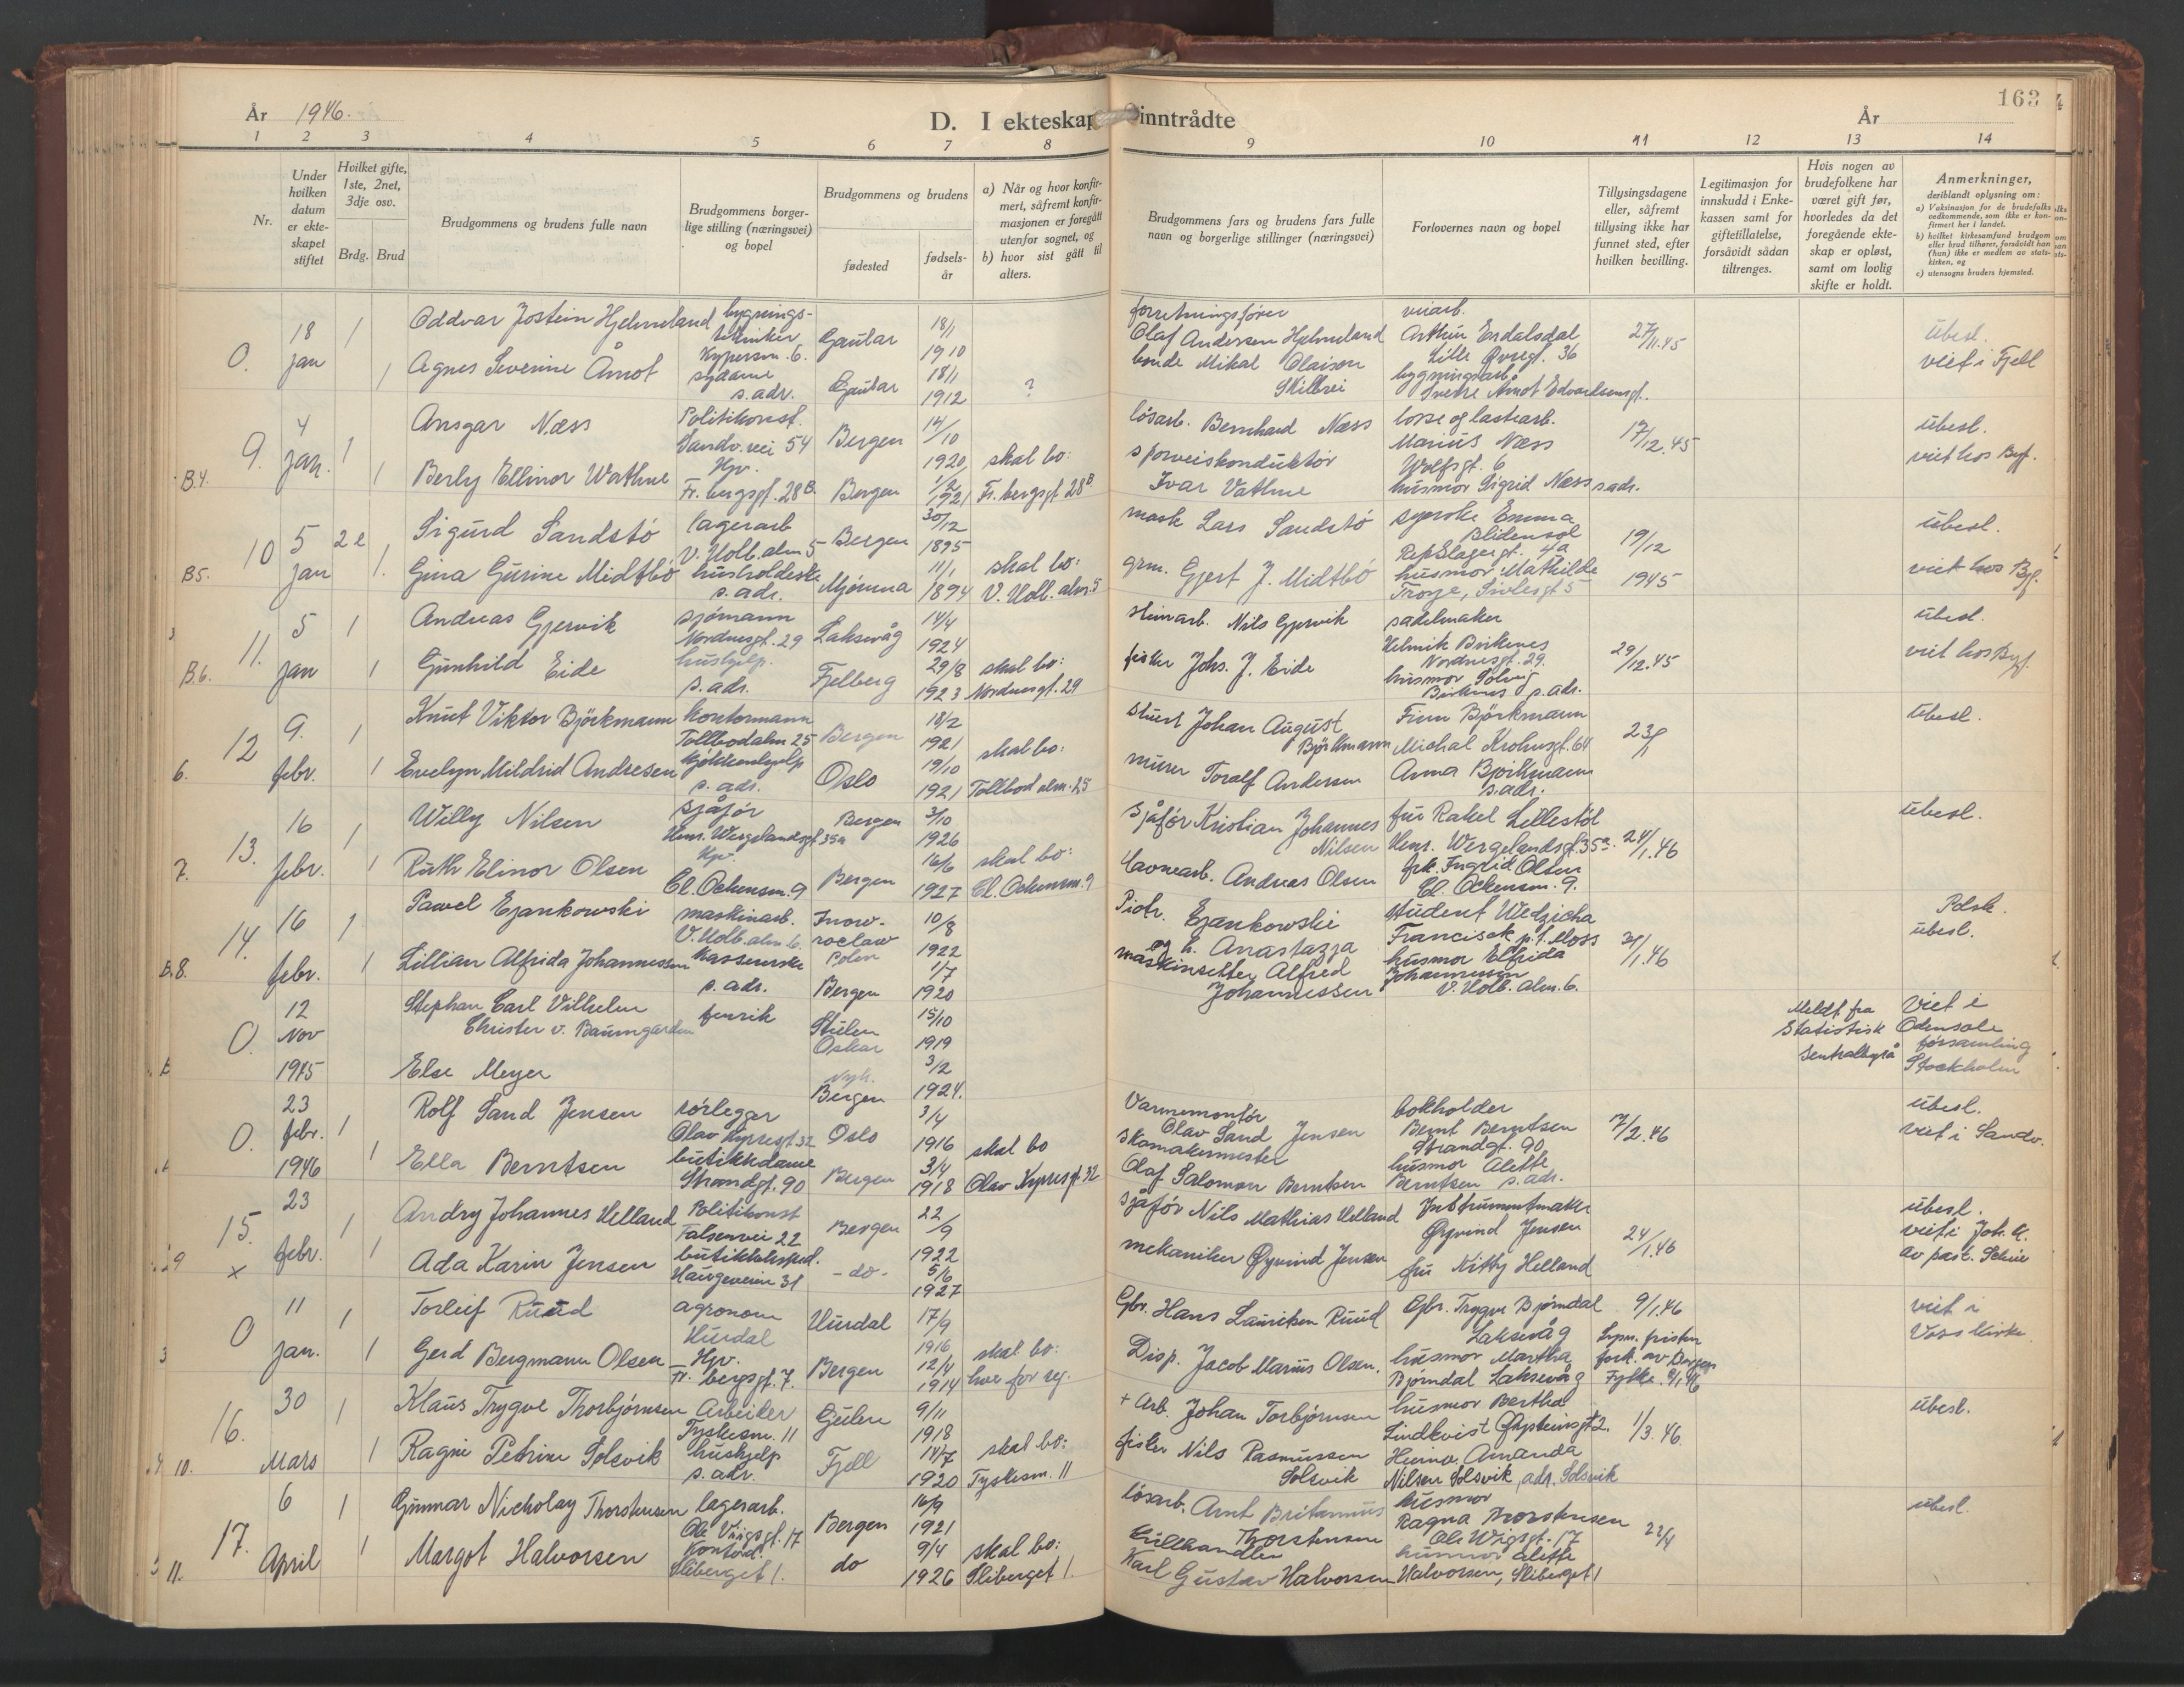 År 1946.
D. I ekteskap inntrådte
År
163
1 2 3 4 5 6 7 8 9 10 11 12 13 14
Nr.
Under hvilken datum er ekteskapet stiftet
Hvilket gifte, 1ste, 2net, 3dje osv.
Brdg. Brud
Brudgommens og brudens fulle navn
Brudgommens borgerlige stilling (næringsvei) og bopel
Brudgommens og brudens
fødested
fødselsår
a) Når og hvor konfirmert, såfremt konfirmasjonen er foregått utenfor sognet, og
b) hvor sist gått til alters.
Brudgommens fars og brudens fars fulle navn og borgerlige stillinger (næringsvei)
Forlovernes navn og bopel
Tillysingsdagene eller, såfremt tillysing ikke har funnet sted, efter hvilken bevilling.
Legitimasjon for innskudd i Enkekassen samt for giftetillatelse, forsåvidt sådan tiltrenges.
Hvis nogen av brudefolkene har været gift før, hvorledes da det foregående ekteskap er opløst, samt om lovlig skifte er holdt.
Anmerkninger,
deriblandt oplysning om:
a) Vaksinasjon for de brudefolks vedkommende, som ikke er konfirmert her i landet.
b) hvilket kirkesamfund brudgom eller brud tilhører, forsåvidt han (hun) ikke er medlem av statskirken, og
c) utensogns bruders hjemsted.
0. 18 jan 1
Oddvar Jostein Hjelmeland
bygnings-
tekniker
Kypersm. 6.
Gaular
18/1
1910
forretningsfører
Olaf Andersen Hjelmeland
Arthur Erdalsdal
Lille Øvregt. 36
27/11.45
übesl.
viet i Fjell
1
Agnes Severine Åmot
sydame
s. adr.
Gaular
18/1
1912
?
bonde Mikal Olaison
Skilbrei
bygningsarb.
Sverre Åmot Edvardsensgt.
9. 4 jan. 1
Ansgar Næss
Politikonst.
Sandv.vei 54
Bergen
14/10
1920
løsarb. Bernhard Næss
losse og lastearb.
Marius Næss
Wolfsgt. 6
17/12.45
übesl.
viet hos Byf.
B.4.
1
Berly Ellinor Wathne
Hp.
Fr. bergsgt. 28B.
Bergen
1/2
1921
skal bo:
Fr. bergsgt 28B
sporveiskonduktør
Ivar Vathne
husmor Sigrid Næss s. adr.
10 5 jan 2 e
Sigurd Sandstø
lagerarb
V. Holb. alm 5
Bergen
30/12
1895
mask Lars Sandstø
syerske Emma
Blidensol
Repslagergt. 4a
19/12
1945
übesl.
viet hos Byf.
B5.
1.
Gina Gurine Midtbø
husholderske
s. adr.
Mjømna
11/1
1894
skal bo:
V. Holb. alm. 5
grm. Gjert J. Midtbø
husmor Mathilde
11. 5 jan 1
Andreas Gjervik
sjømann
Nordnesgt. 29
Laksevåg
14/4
1924
steinarb. Nils Gjervik
sadelmaker
Helmik Birkenes
Nordnesgt. 29.
29/12.45
übesl.
viet hos Byf.
B.6.
1
Gunhild Eide
hushjelp.
s. adr.
Fjelberg
29/8
1923
skal bo:
Nordnesgt. 29
fisker Johs. J. Eide
husmor Solveig
Birknes s. adr.
12 9. febr. 1
Knut Viktor Björkmann
kontormann
Tollbodalm 25
Bergen
18/2
1921
stuert Johan August
Björkmann
Finn Björkmann
Michal Krohnsgt. 64
23/1
übesl.
6.
1
Evelyn Mildrid Andresen
kjökkenhjelp
s. adr.
Oslo
19/10
1921
skal bo:
Tollbod alm. 25
murer Toralf Andersen
Anna Björkmann
s. adr.
13. 16 febr. 1
Willy Nilsen
sjåfør
Henr. Wergelandsgt 35a
Bergen
3/10
1926
sjåfør Kristian Johannes
Nilsen
fru Rakel Lillestöl
Henr. Wergelandsgt. 35a.
24/1.46
übesl.
7.
1
Ruth Elinor Olsen
Hp.
Cl. Ockensm. 9
Bergen
16/6
1927
skal bo:
Cl. Ockensm. 9
havnearb. Andreas Olsen
frk. Ingrid Olsen
Cl. Ockensm. 9.
14. 16 febr. 1
Pawel Ejankowski
maskinarb.
V. Holb. alm 6.
Inow-
roclaw
Polen
10/8
1922
Piotr. Ejankowski
og h. Anastazja
student Wedzicha
Francisek p.t. Moss
31/1.46
Polsk.
übesl.
B.8.
1
Lillian Alfrida Johannessen
kassererske
s. adr.
Bergen
1/7
1920
maskinsetter Alfred
Johannessen
husmor Elfrida
Johannessen
V. Holb. alm. 6.
0. 12 Nov 1945
Stephan Carl Vilhelm
Christer v. Baumgarten
fenrik
Stülen
Oskar
15/10
1919
Meldt fra
Statistisk
Sentralbyrå
Viet i
Odensala
församling
Stockholm
Else Meyer
Nyk.
Bergen
3/2
1924.
0. 23 febr. 1946 1
Rolf Sand Jensen
rørlegger
Olav Kyrresgt. 32
Oslo
3/4
1916
Varmemontør
Olav Sand Jensen
bokholder
Bernt Berntsen
Strandgt. 90
7/2.46
übesl.
viet i Sandv.
1
Ella Berntsen
butikkdame
Strandgt. 90
Bergen
3/4
1918
skal bo
Olav Kyrresgt. 32
skomakermester
Olaf Salomon Berntsen
husmor Alette
Berntsen s. adr.
15. × 23 febr. 1
Andry Johannes Helland
Politikonst
Falsensvei 22
Bergen
22/9
1922
sjåfør Nils Mathias Helland
Instrumentmaker
Øyvind Jensen
24/1.46
übesl.
viet i Joh. k.
av past.
1
Ada Karin Jensen
butikkeksped.
Haugeveien 31
- do -
5/6
1927
mekaniker Øyvind Jensen
fru Kitty Helland
0 11 jan. 1
Torleif Ruud
agronom
Hurdal
Hurdal
17/9
1916
Gbr. Hans Lauritsen Ruud
Gbr. Trygve Bjørndal
Laksevåg
9/1.46
Lysn. fristen
fork. av Bergen
Fylke. 9/1.46
viet i
Voss kirke
3
1
Gerd Bergmann Olsen
Hp.
Fr. bergsgt. 7.
Bergen
12/4
1914
skal bo:
hver for seg.
Disp. Jacob Marius Olsen.
husmor Martha
Bjørndal Laksevåg
16. 30 Mars 1
Klaus Trygve Thorbjørnsen
Arbeider
Tyskesm. 11
Gulen
9/11
1918
+ Arb. Johan Torbjørnsen
husmor Bertha
Lindkvist
1/3.46.
übesl.
10.
1
Ragni Petrine Solsvik
hushjelp
s. adr.
Fjell
14/7
1920
skal bo:
Tyskesm. 11
fisker Nils Rasmussen
Solsvik
Amanda
Nilsen Solsvik, adr. Solsvik
17. 6 April 1
Gunnar Nicholay Thorstensen
lagerarb.
Ole Vigsgt. 17
Bergen
16/9
1921
løsarb. Arnt Britanius
Thorstensen
husmor
Ragna Thorstensen
Ole Wigsgt. 17
22/4
übesl.
11.
1
Margot Halvorsen
Kontord.
Sliberget 1.
do
9/4
1926
skal bo:
Sliberget 1.
Kullhandler
Karl Gustav Halvorsen
husmor Alette
Halvorsen, Sliberget 1